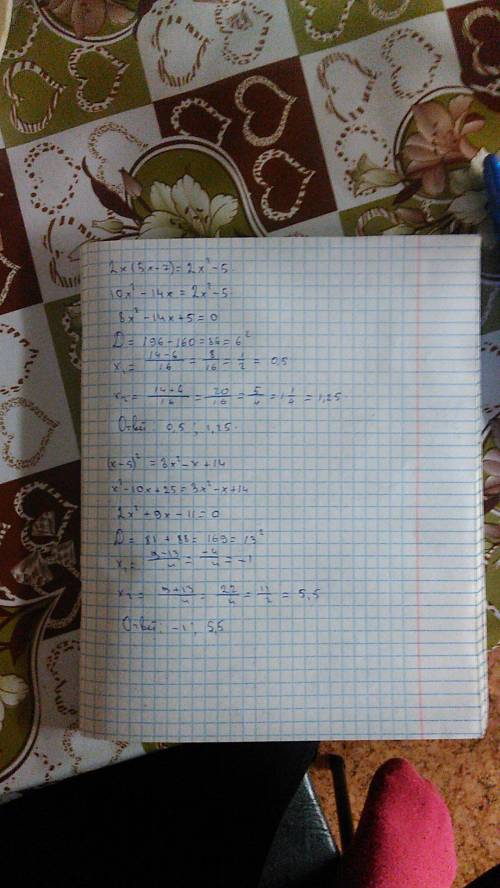 2x(5x-7)=2x²-5
10x²-14x=2x²-5
8x²-14x+5=0
D=196-160=36=6²
x₁= 14-6/16 = 8/16 = 1/2 = 0,5
x₂= 14+6/16 = 20/16 = 5/4 = 1 1/4 = 1,25
Ответ: 0,5; 1,25.
(x-5)²=3x²-x+14
x²-10x+25=3x²-x+14
2x²+9x-11=0
D=81+88=169=13²
x₁= 9-13/4 = -4/4 = -1
x₂= 9+13/4 = 22/4 = 11/2 = 5,5
Ответ: -1; 5,5